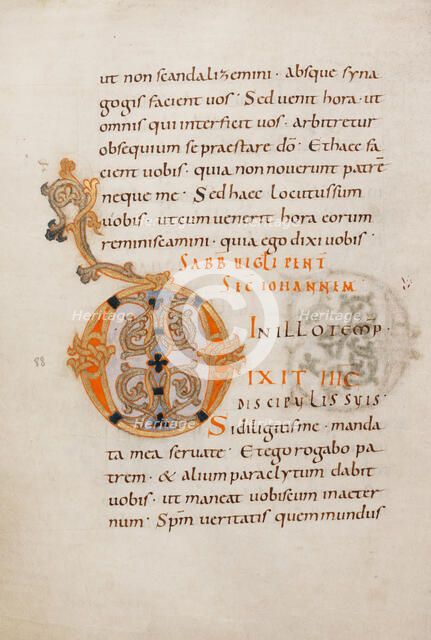 ut non scandalizemini · absque syna
gogis facient vos · Sed venit hora · ut
omnis qui interficit vos · arbitretur
obsequium se praestare dō · Et haec fa
cient vobis · quia non noverunt patrē
neque me · Sed haec locutus sum
vobis · ut cum venerit hora eorum
reminiscamini · quia ego dixi vobis ·
SABB VIGL PENT
SEC IOHANNEM
IN ILLO TEMP
88
DIXIT IHC
DISCIPULIS SUIS ·
Si diligitis me · manda
ta mea servate · Et ego rogabo pa
trem · & alium paraclytum dabit
vobis · ut maneat vobiscum in aeter
num · Spm veritatis quem mundus
Heritage Images